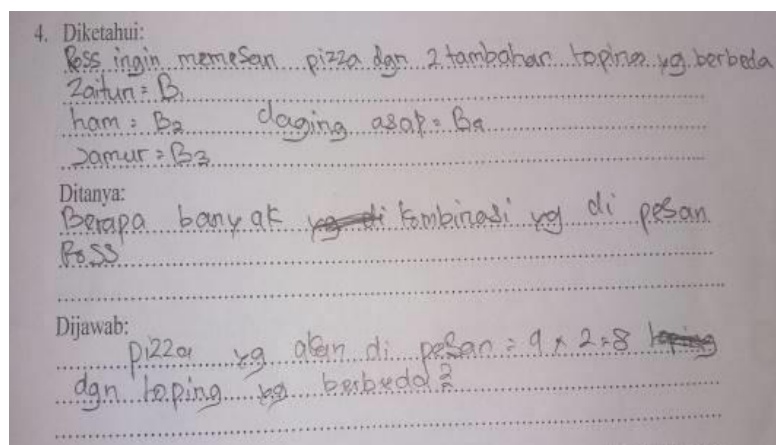 4. Diketahui:
Ross ingin memesan pizza dgn 2 tambahan toping yg berbeda
Zaitun = B1
ham = B2 daging asap = B4
Jamur = B3
Ditanya:
Berapa banyak kombinasi yg di pesan
Ross
Dijawab:
pizza yg akan di pesan = 4 x 2 = 8
dgn toping yg berbeda2